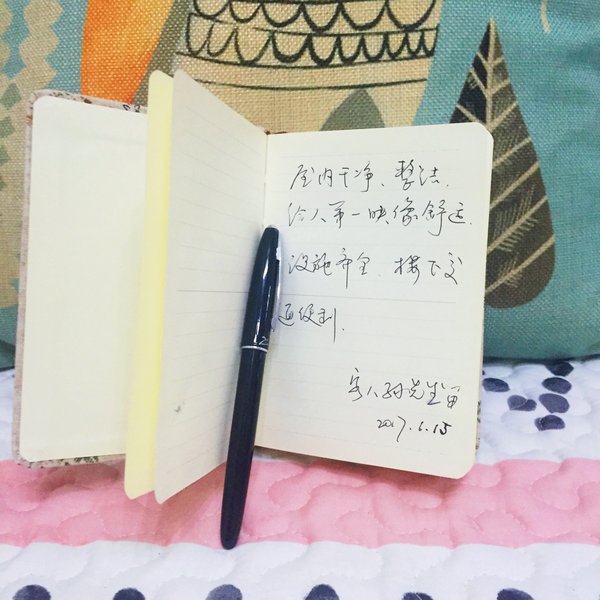 屋内干净、整洁.
给人第一映像舒适.
设施齐全. 楼下交
通便利.
客人孙先生留
2017.1.15